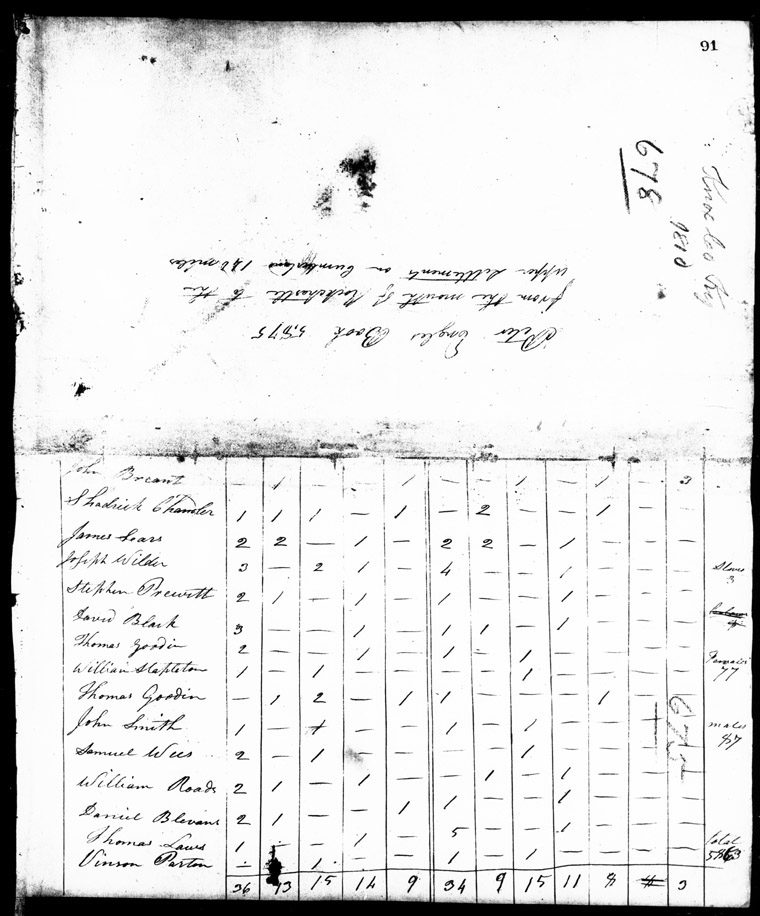 91
Knox Co Ky
1810
678
Peter Engles Book 5,675
from the mouth of Rockcastle to the
upper Settlements on Cumberland miles
John Breant — 1 — — 1 — — 1 — 1 — 3
Shadrick Chandler 1 1 1 — 1 — 2 — — 1 — —
James Sears 2 2 — 1 — 2 2 — 1 — — —
Joseph Wilder 3 — 2 1 — 4 — — 1 — — —
Slaves
3
Stephen Prewitt 2 1 — 1 — 1 — — 1 — — —
David Blark 3 — — 1 — 1 1 — 1 — — —
Thomas Goodin 2 — — 1 — 1 — 1 — — — —
Females
77
William Stapleton 1 — 1 — — — — 1 — — — —
Thomas Goodin — 1 2 — 1 1 — — — 1 — —
John Smith 1 — 1 — — 1 — 1 — — — —
males
87
Samuel Wees 2 — 1 — — — — 1 — — — —
William Roads 2 1 — 1 — — 1 — 1 — — —
Daniel Blevans 2 1 — — 1 1 — — 1 — — —
Thomas Laws 1 — — 1 — 5 — — 1 — — —
total
Vinson Parton — — 1 — — 1 — 1 — — — —
36 13 15 14 9 34 9 15 11 8 3